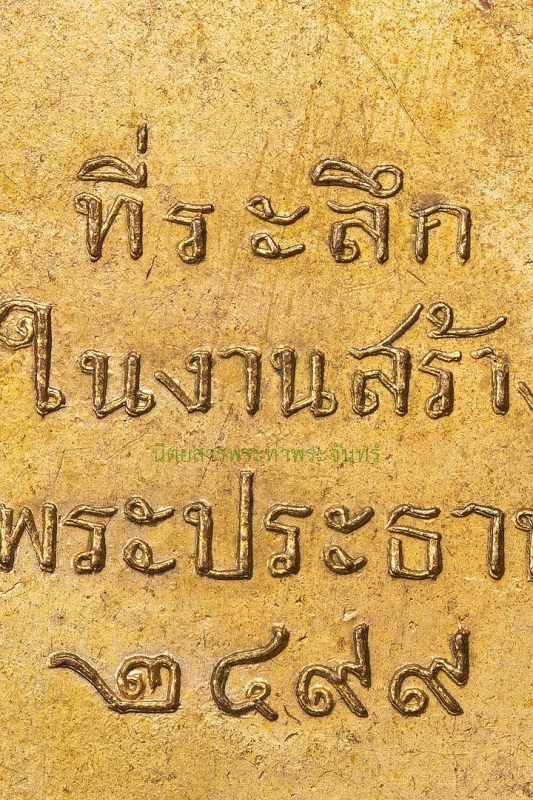 ที่ระลึก
ในงานสร้าง
นิตยสารพระท่าพระจันทร์
พระประธาน
๒๔๙๙